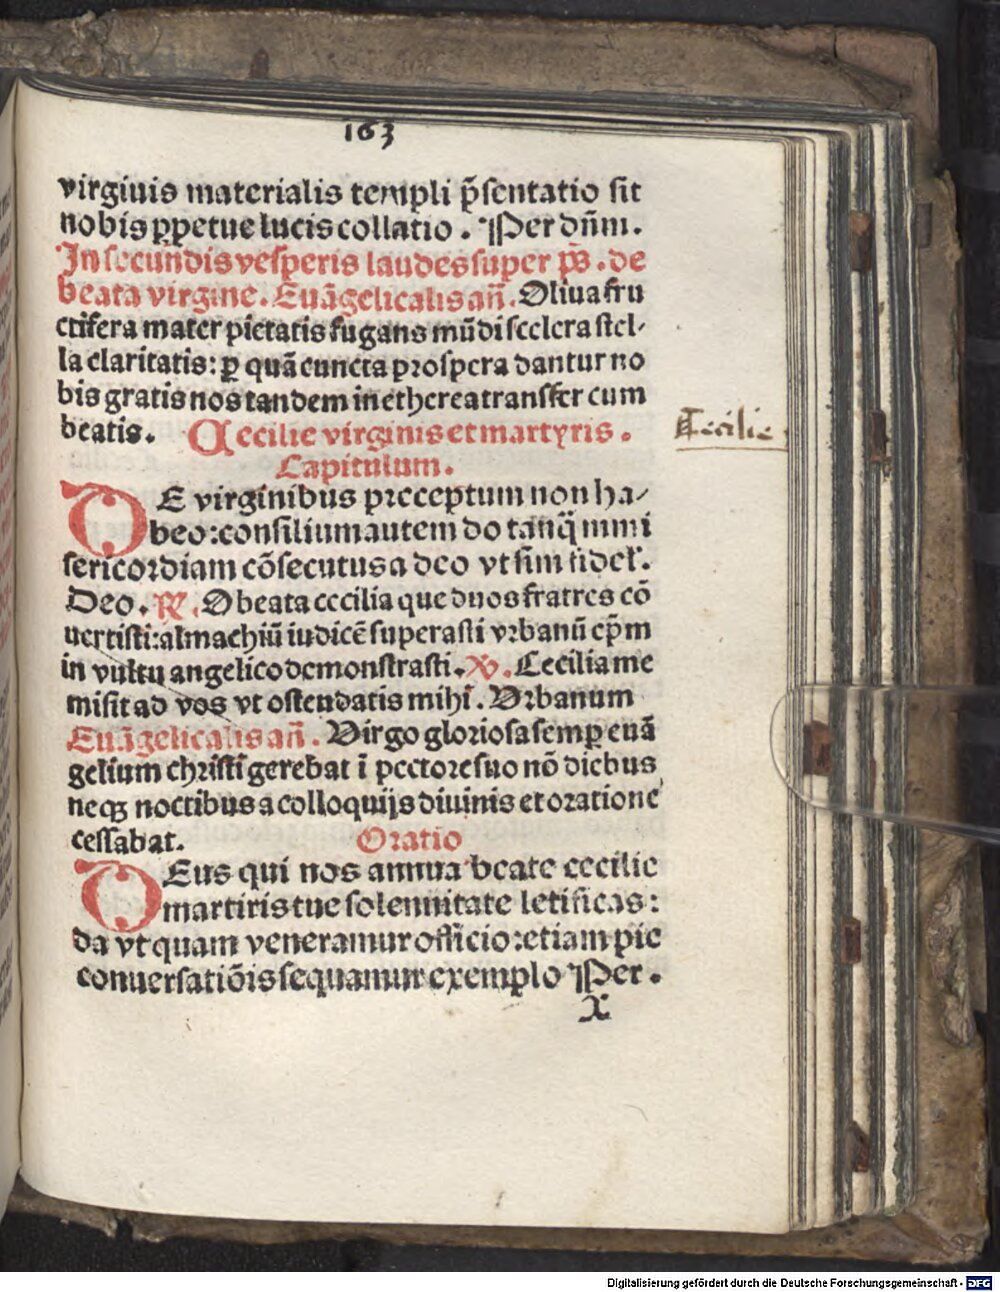 163
virginis materialis templi p̃sentatio sit
nobis ꝑpetue lucis collatio . Per dñm.
In secundis vesperis laudes super ps̃ . de
beata virgine . Euãgelicalis añ . Oliua fru
ctifera mater pietatis fugans mũdi scelera stel⸗
la claritatis: ꝑ quã cuncta prospera dantur no
bis gratis nos tandem in etherea transfer cum
beatis . Cecilie virginis et martyris .
Cecilie
Capitulum .
DE virginibus preceptum non ha⸗
beo: consilium autem do tanq̃ mi
sericordiam cõsecutus a deo vt sim fidel'.
Deo . R̷ . O beata cecilia que duos fratres cõ
uertisti: almachiũ iudicẽ superasti vrbanũ ep̃m
in vultu angelico demonstrasti . V̷ . Cecilia me
misit ad vos vt ostendatis mihi . Vrbanum
Euãgelicalis añ . Virgo gloriosa semꝑ euã
gelium christi gerebat ĩ pectore suo nõ diebus
neqꝫ noctibus a colloquijs diuinis et oratione
cessabat. Oratio
DEus qui nos annua beate cecilie
martiris tue solennitate letificas:
da vt quam veneramur officio: etiam pie
conuersatiõis sequamur exemplo Per .
X
Digitalisierung gefördert durch die Deutsche Forschungsgemeinschaft - DFG